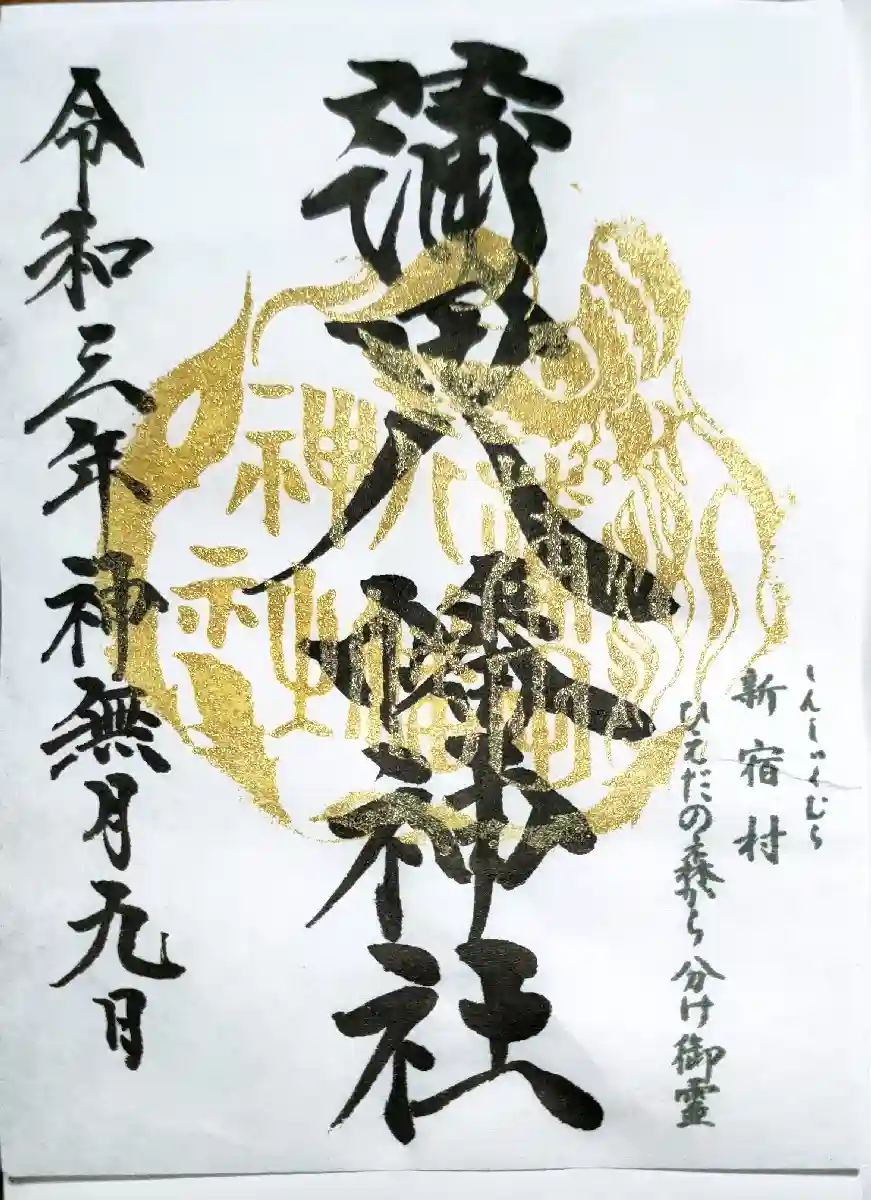 しんしゅくむら
新宿村
ひえだの森から分け御霊
蒲田八幡神社
蒲田
八幡
神社
令和三年神無月九日